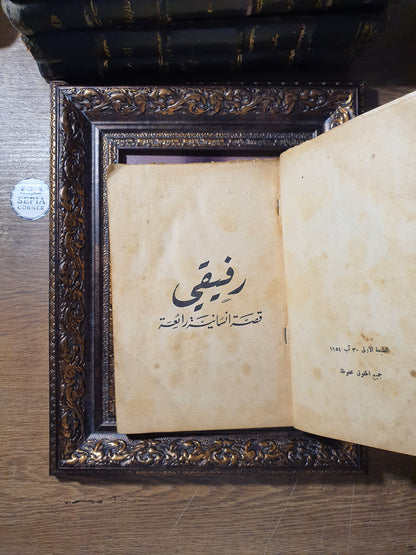 SEPIA
CORNER
رفيقي
قصة انسانية رائعة
الطبعة الاولى ٣٠ آب ١٩٥٤
جميع الحقوق محفوظة